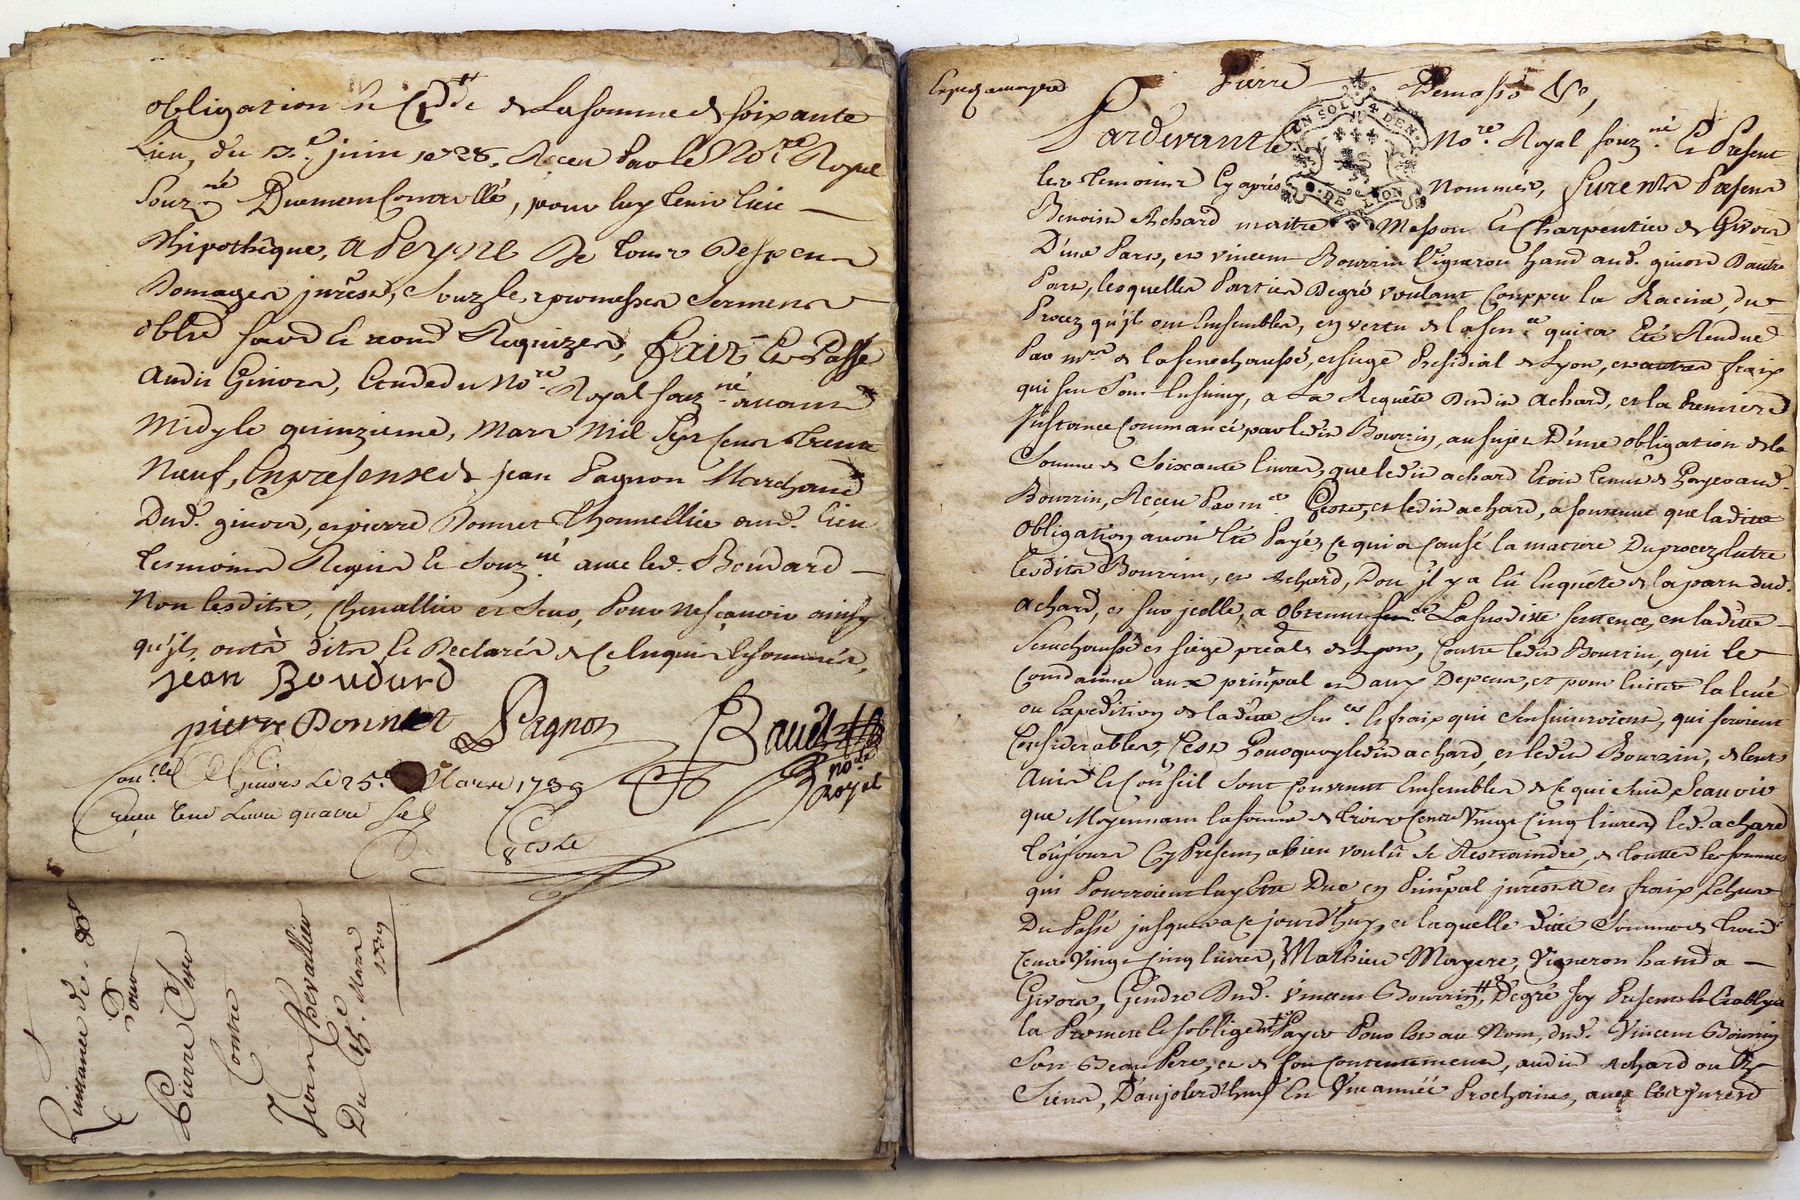 obligation de la somme de soixante
Livres, du juin 1728, Receu Par le No.re Royal
Souz.né Duement Controllé, pour luy tenir lieu
d'hipothêque, a Peyne De tous Despens
Domages jnrêst, Souz les promesses Serments
oblig Requizes, fait Et Passé
audit Givors, Etude du No.re Royal souz.né avant
Midy le quinzieme, Mars Mil Sept Cens Trente
Neuf, En presense de jean Pagnon Marchand
Dud. givors, et pierre Donnet Thonnellier aud. lieu
temoins Requis et Souz.né avec led. Boudard
Non lesdits, Chevallier et Seux, Pour ne sçavoir ainsy
qu'ils ont dits et Declarés de Ce Enquis et sommés,
jean Boudard
pierre Donnet Pagnon Baudl no.re
Royal
Con.llé à Givors Le 25.e Mars 1739
Receu Livre quatre Sols
Ceste
Quittance de 80#
Pour
Pierre Seux
Contre
Jean Chevallier
Du 15.e Mars
1739
Expedié a mayere
Pierre Demasso
UN SOL 4 DEN.
DE LION
Pardevant le No.re Royal souz.né Et Present
les temoins Cy aprés Nommés, furent Presens
Benoist Achard maitre Masson et Charpentier de Givors
D'une Part, et vincent Bourrin Vigneron hand aud. givors D'autre
Part, lesquelles Parties De gré voulant Coupper la Racine, du
Procez qu'jls ont Ensembles, en vertu de la sen.ce qui a Eté Rendue
Par m.rs de la senechaussé, et siege Presidial de Lyon, et autres fraix
qui sen sont Ensuivy, a La Requête Dudit Achard, et la Premiere
Instance Commancé par ledit Bourrin, au sujet D'une obligation de la
Somme de Soixante livres, que ledit achard Etoit tenus de Payer aud.
Bourrin, Receu Par m.e Ceste, et ledit achard, a soutenut que laditte
obligation avoit Eté Payé, Ce qui a Causé la matiere Du procez Entre
lesdits Bourrin, et Achard, Dou jl y a Eû Enquête de la part dud.
achard, et sur jcelle, a obtenu La susditte sentence, en laditte
Senechaussé et siege présal de Lyon, Contre ledit Bourrin, qui le
Condamne aux prinpal et aux Depens, et pour Eviter la levé
ou Expedition de laditte Sen.ce les fraix qui sensuivroient, qui seroient
Considerables, C'est Pourquoy ledit achard, et ledit Bourrin, de leurs
Avis et Conseil sont Convenut Ensembles de Ce qui suit, Scavoir
que Moyennant la somme de trois Cents Vingt Cinq livres led. achard
toûjours Cy Present, a bien voulû se Restraindre, de touttes les sommes
qui Pourroient luy Etre Due en Prinpal jnrêsts et fraix Echus
Du Passé jusques a Ce jourd'huy, et laquelle ditte Somme de trois
Cens Vingt Cinq livres, Mathieu Mayere, Vigneron hand a
Givors, Gendre Dud. Vincent Bourrin# De gré Sy Present
la Promere et s'obligent Payer Pour Et au Nom, dud. Vincent Bourrin
Son Beau Pere, et de son Consentement, audit Achard ou les
Siens, D'aujourd'huy En Une année Prochaine, avec les jnrests